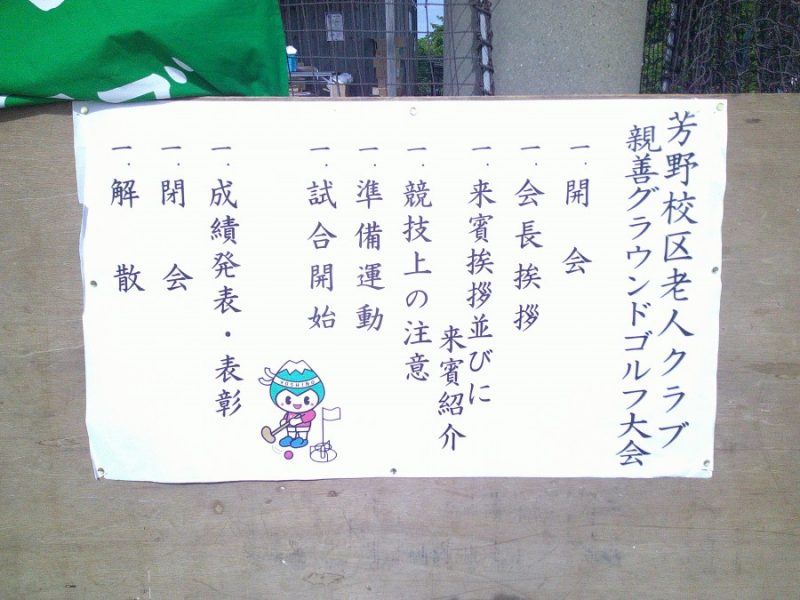 芳野校区老人クラブ
親善グラウンドゴルフ大会
一.開会
一.会長挨拶
一.来賓挨拶並びに
来賓紹介
一.競技上の注意
一.準備運動
一.試合開始
一.成績発表・表彰
一.閉会
一.解散
YOSHINO